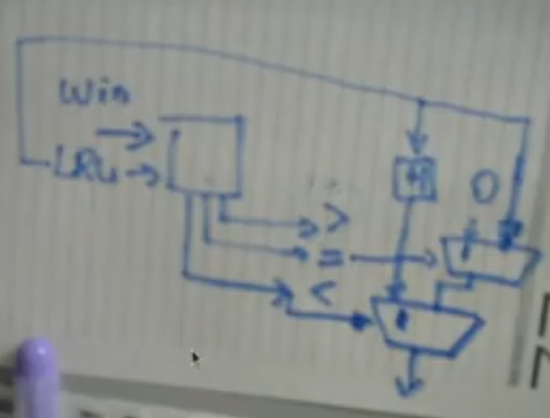 Win
LRU
+1
0
>
=
<
1
1